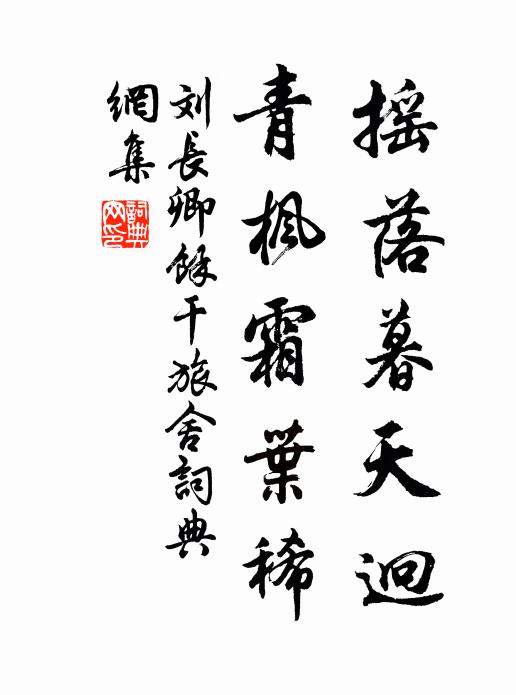 摇落暮天迥
青楓霜葉稀
刘長卿餘干旅舍詞典
網集
詞典
网印